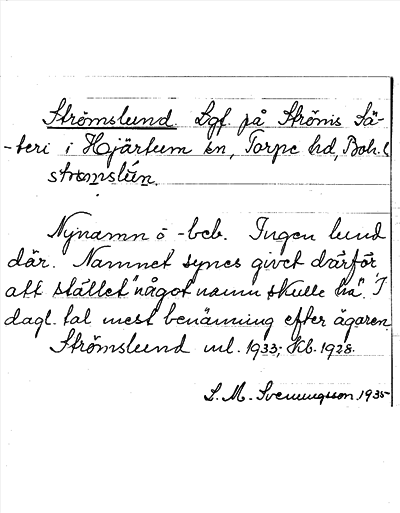 Strömslund. Lgf. på Ströms Sä-
-teri i Hjärtum sn, Torpe hd, Boh. l
strömslún.
Nynamn o -beb. Ingen lund
där. Namnet synes givet därför,
att stället "något namn skulle ha". I
dagl. tal mest benämning efter ägaren.
Strömslund ml. 1933; Kb. 1928.
S. M. Svenningsson 1935